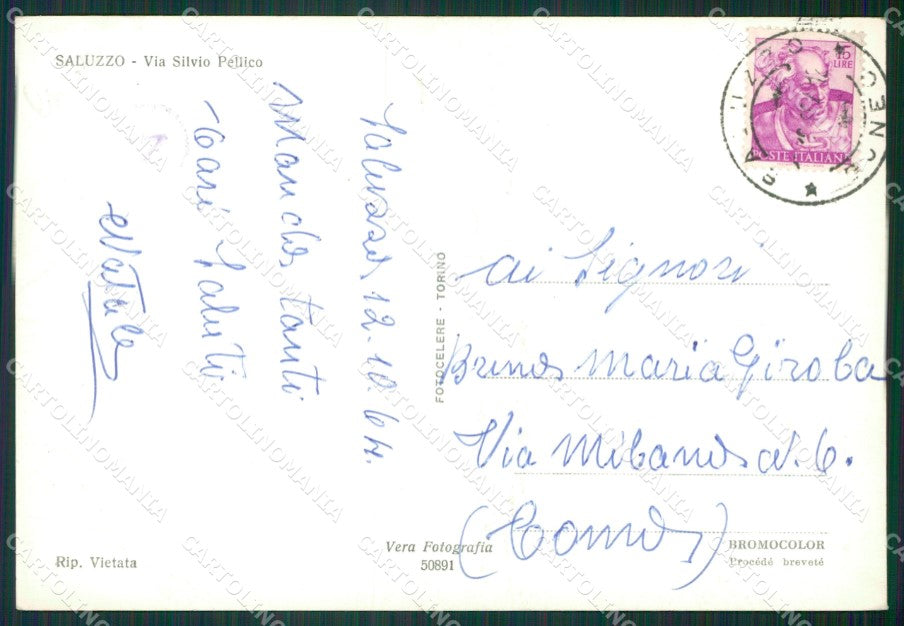 SALUZZO - Via Silvio Pellico
Saluzzo, 12.10.64.
Mando tanti
Cari Saluti
Natale
FOTOCELERE - TORINO
15
LIRE
POSTE ITALIANE
CUNEO
ai Signori
Bruno Maria Giroba
Via Milano N. 6.
(Como)
Rip. Vietata
Vera Fotografia
50891
BROMOCOLOR
Procédé breveté
CARTOLINOMANIA